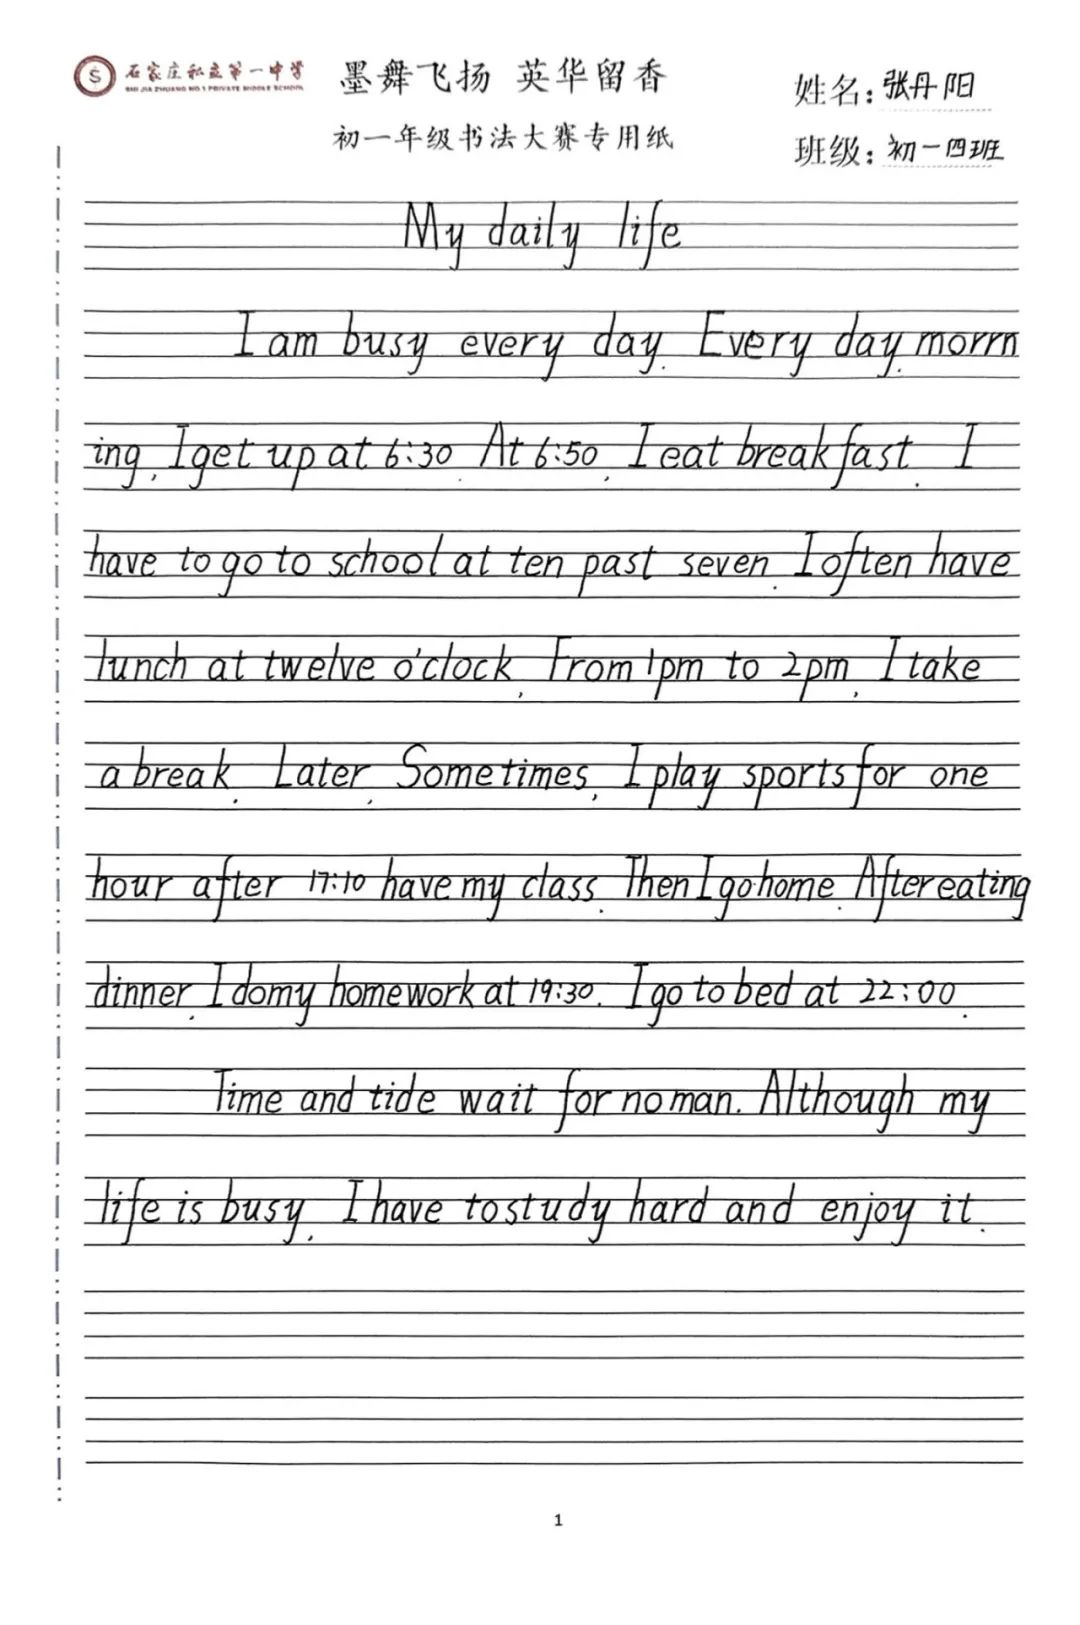 石家庄私立第一中学
SHI JIA ZHUANG NO.1 PRIVATE MIDDLE SCHOOL
墨舞飞扬 英华留香
初一年级书法大赛专用纸
姓名:张丹阳
班级:初一四班
My daily life
I am busy every day. Every day, morrn
ing, I get up at 6:30. At 6:50, I eat breakfast. I
have to go to school at ten past seven. I often have
lunch at twelve o'clock, From 1pm to 2pm, I take
a break. Later, Sometimes, I play sports for one
hour after 17:10 have my class. Then I go home. After eating
dinner, I do my homework at 19:30. I go to bed at 22:00.
Time and tide wait for no man. Although my
life is busy, I have to study hard and enjoy it.
1